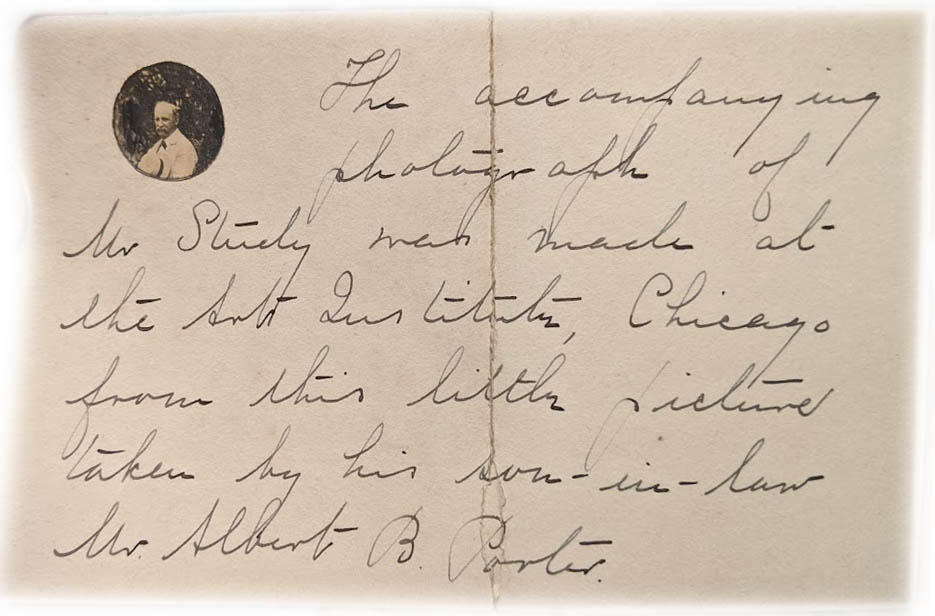 The accompanying
photograph of
Mr Study was made at
the Art Institute, Chicago
from this little picture
taken by his son-in-law
Mr. Albert B. Porter.